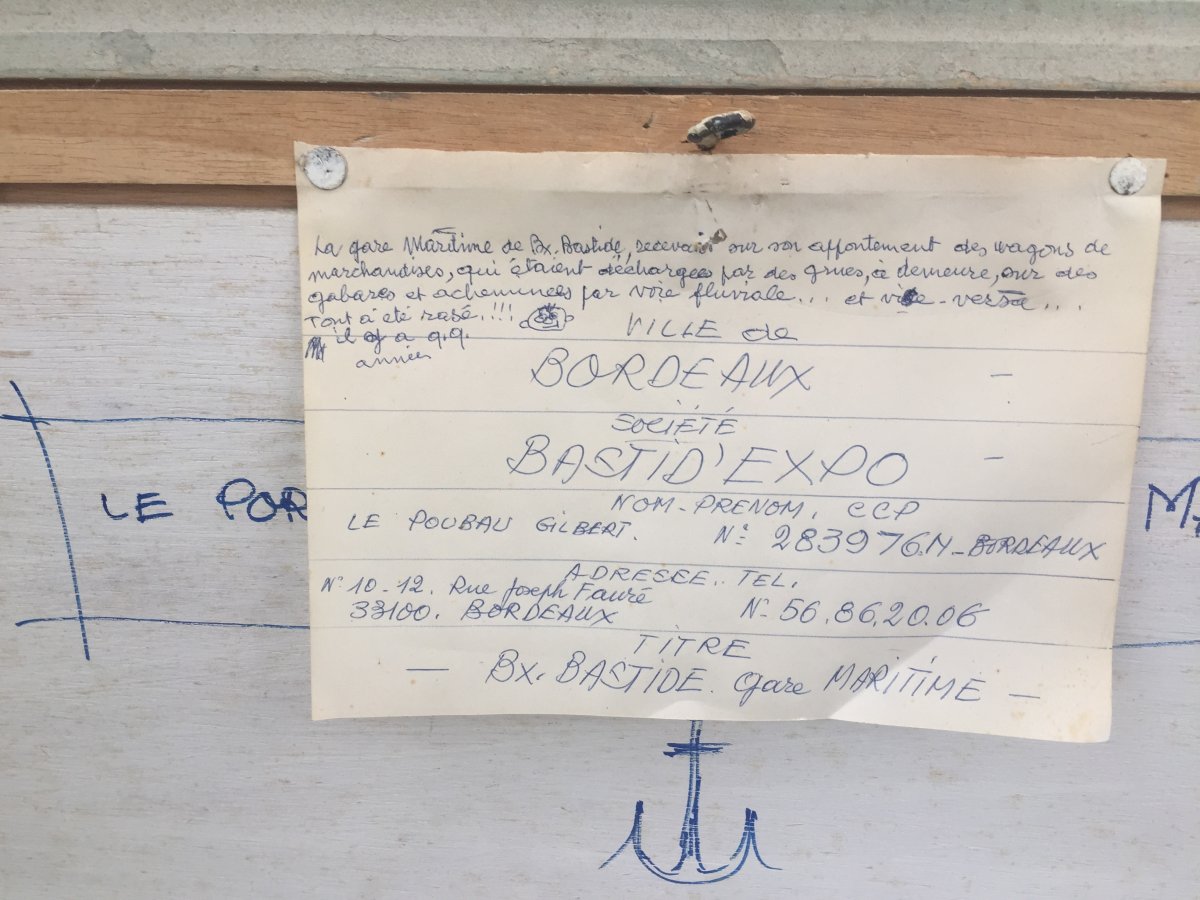 La gare Maritime de Bx. Bastide, recevait sur son appontement des wagons de
marchandises, qui étaient déchargées par des grues, à demeure, sur des
gabares et acheminées par voie fluviale... et vice-versa....
Tout a été rasé.!!!
il y a q.q.
années
VILLE de
BORDEAUX -
SOCIÉTÉ
BASTID'EXPO -
NOM-PRENOM. CCP
LE POUBAU GILBERT. N°: 283976.N-BORDEAUX
ADRESEE.. TEL.
N° 10-12. Rue Joseph Fauré
33100. BORDEAUX N°- 56.86.20.06
TITRE
- Bx. BASTIDE. Gare MARITIME -
LE POR
MA